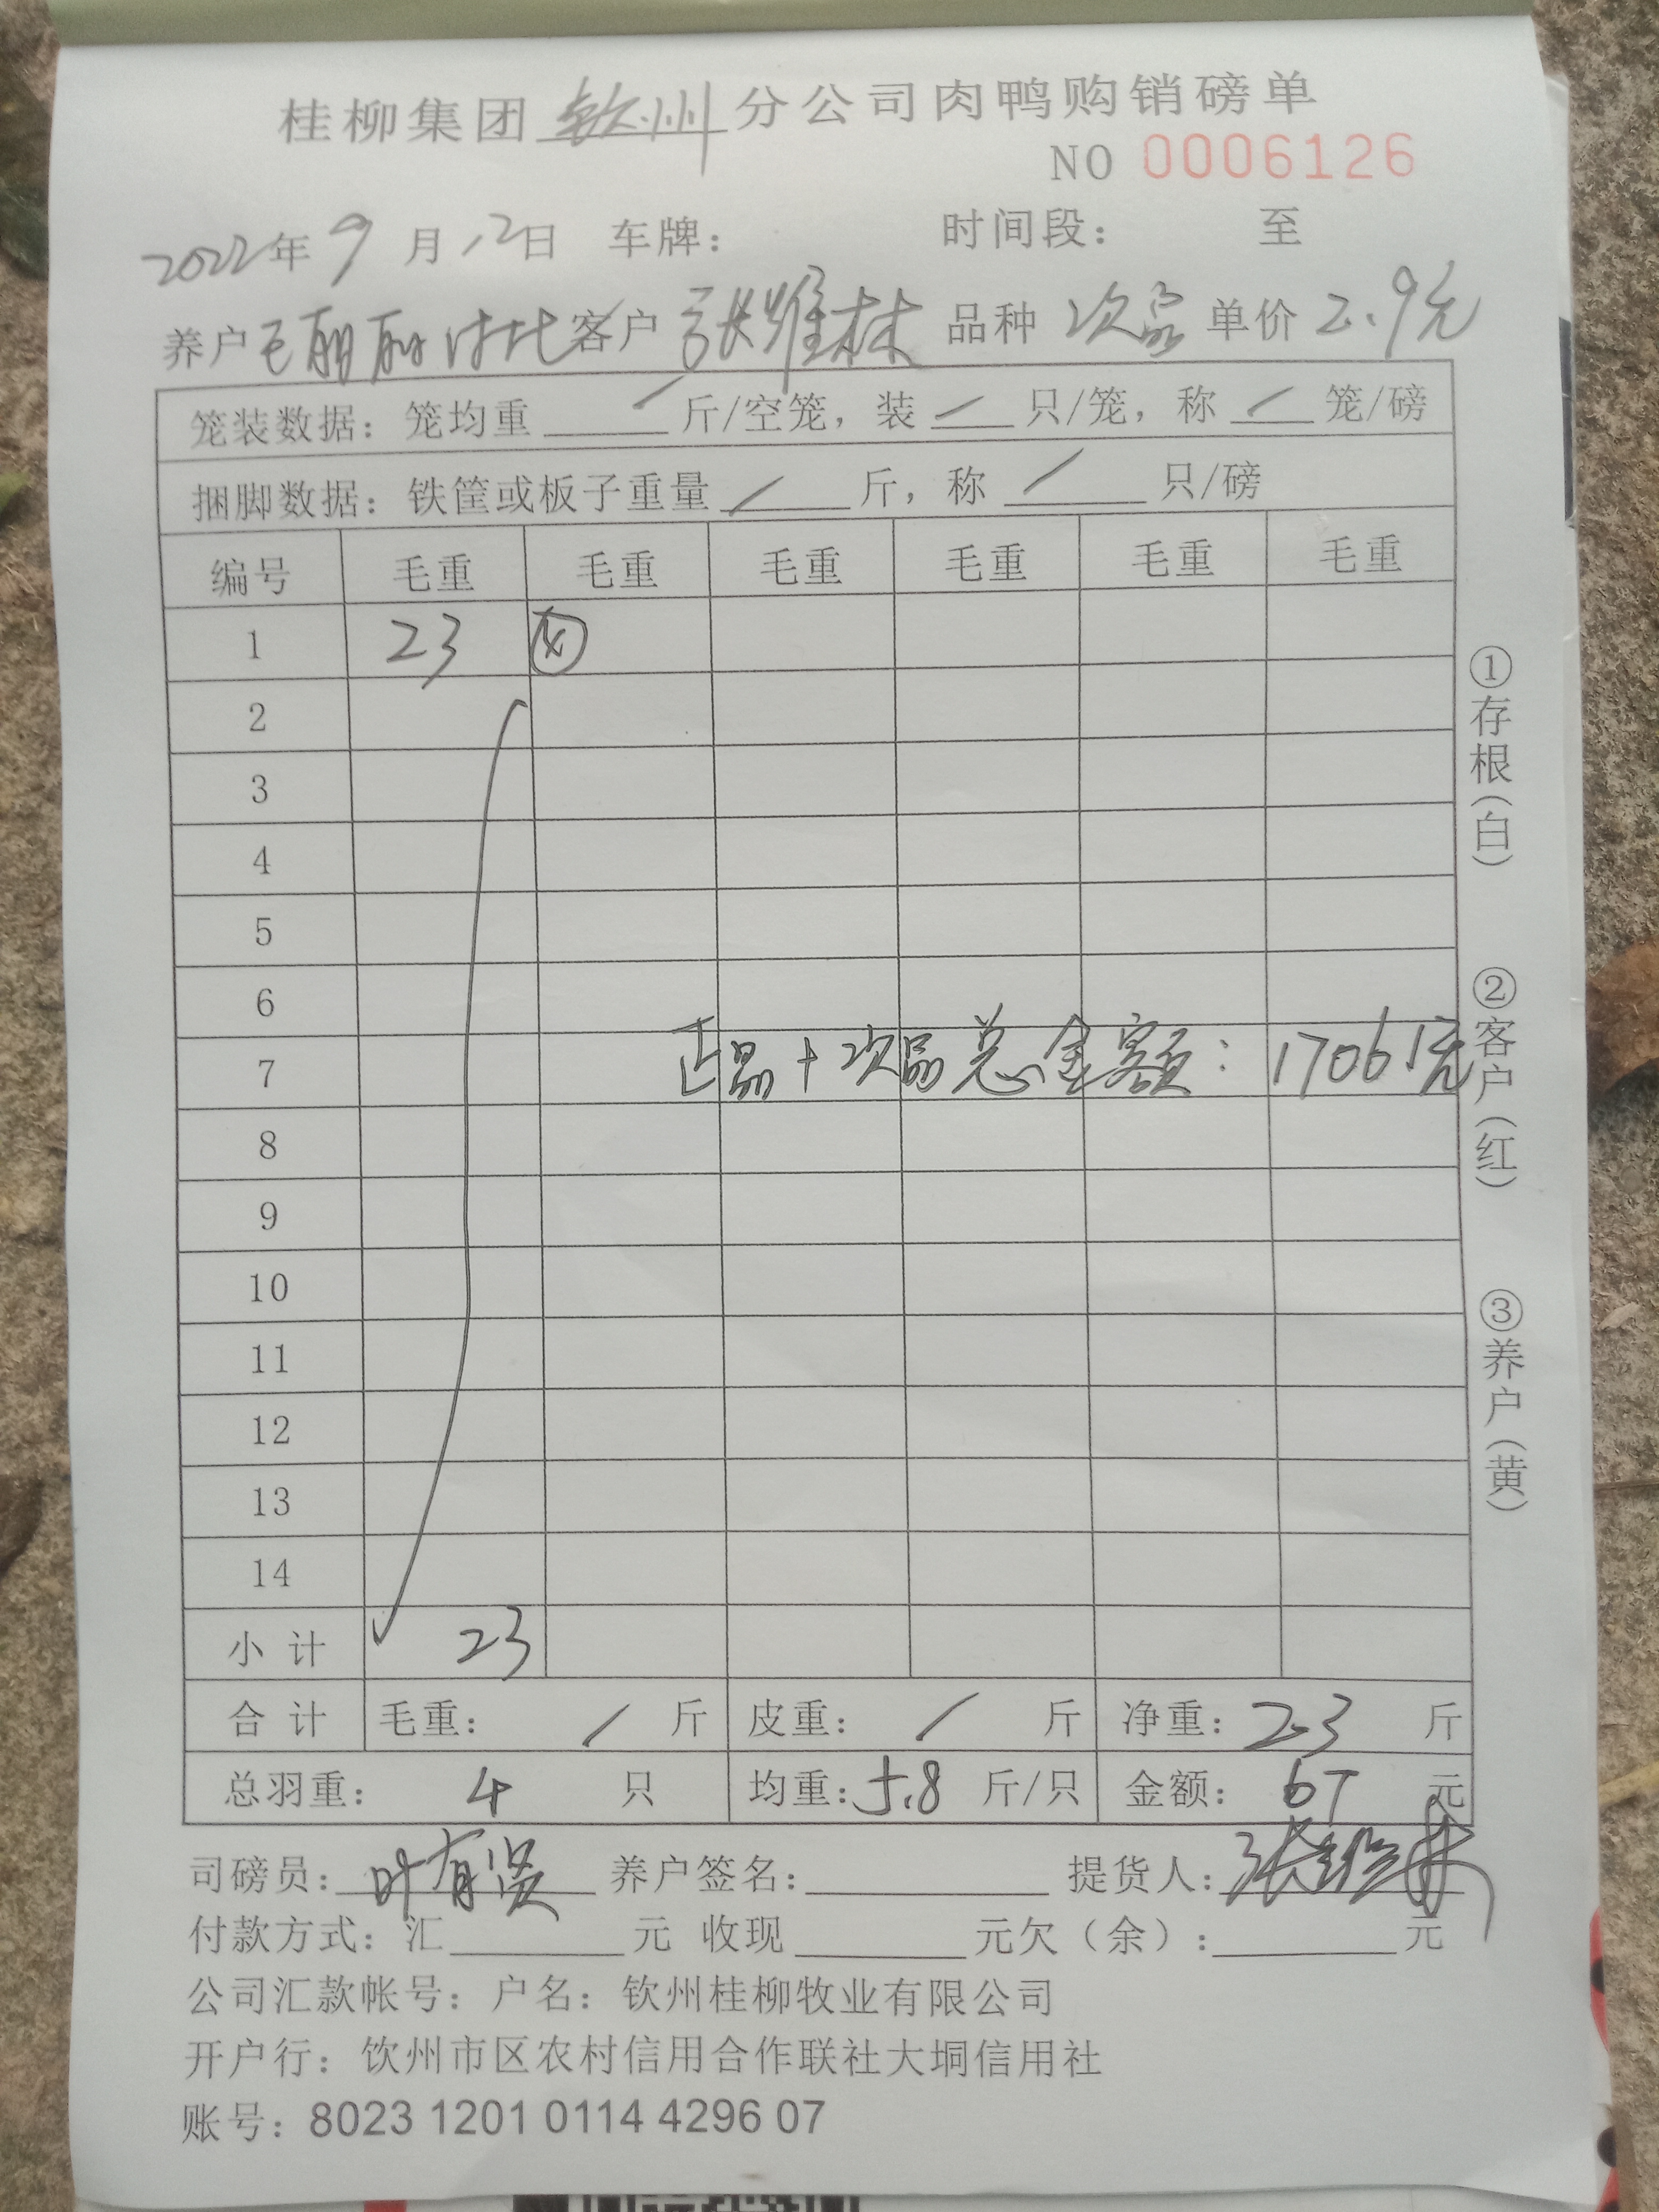 桂柳集团钦州分公司肉鸭购销磅单
NO 0006126
2022年9月12日 车牌： 时间段： 至
养户 丽丽 客户 张维林 品种 次品 单价 2.9元
笼装数据：笼均重 / 斤/空笼，装 / 只/笼，称 / 笼/磅
捆脚数据：铁筐或板子重量 / 斤，称 / 只/磅
编号 毛重 毛重 毛重 毛重 毛重 毛重
1 23 ④
2
3
4
5
6
7 正品+次品总金额：17061元
8
9
10
11
12
13
14
小计 23
合计 毛重： / 斤 皮重： / 斤 净重：23 斤
总羽重： 4 只 均重：5.8 斤/只 金额： 67 元
司磅员：叶有贤 养户签名： 提货人：张维林
付款方式：汇 元 收现 元欠（余）： 元
公司汇款帐号：户名：钦州桂柳牧业有限公司
开户行：钦州市区农村信用合作联社大垌信用社
账号：8023 1201 0114 4296 07
①存根（白）
②客户（红）
③养户（黄）